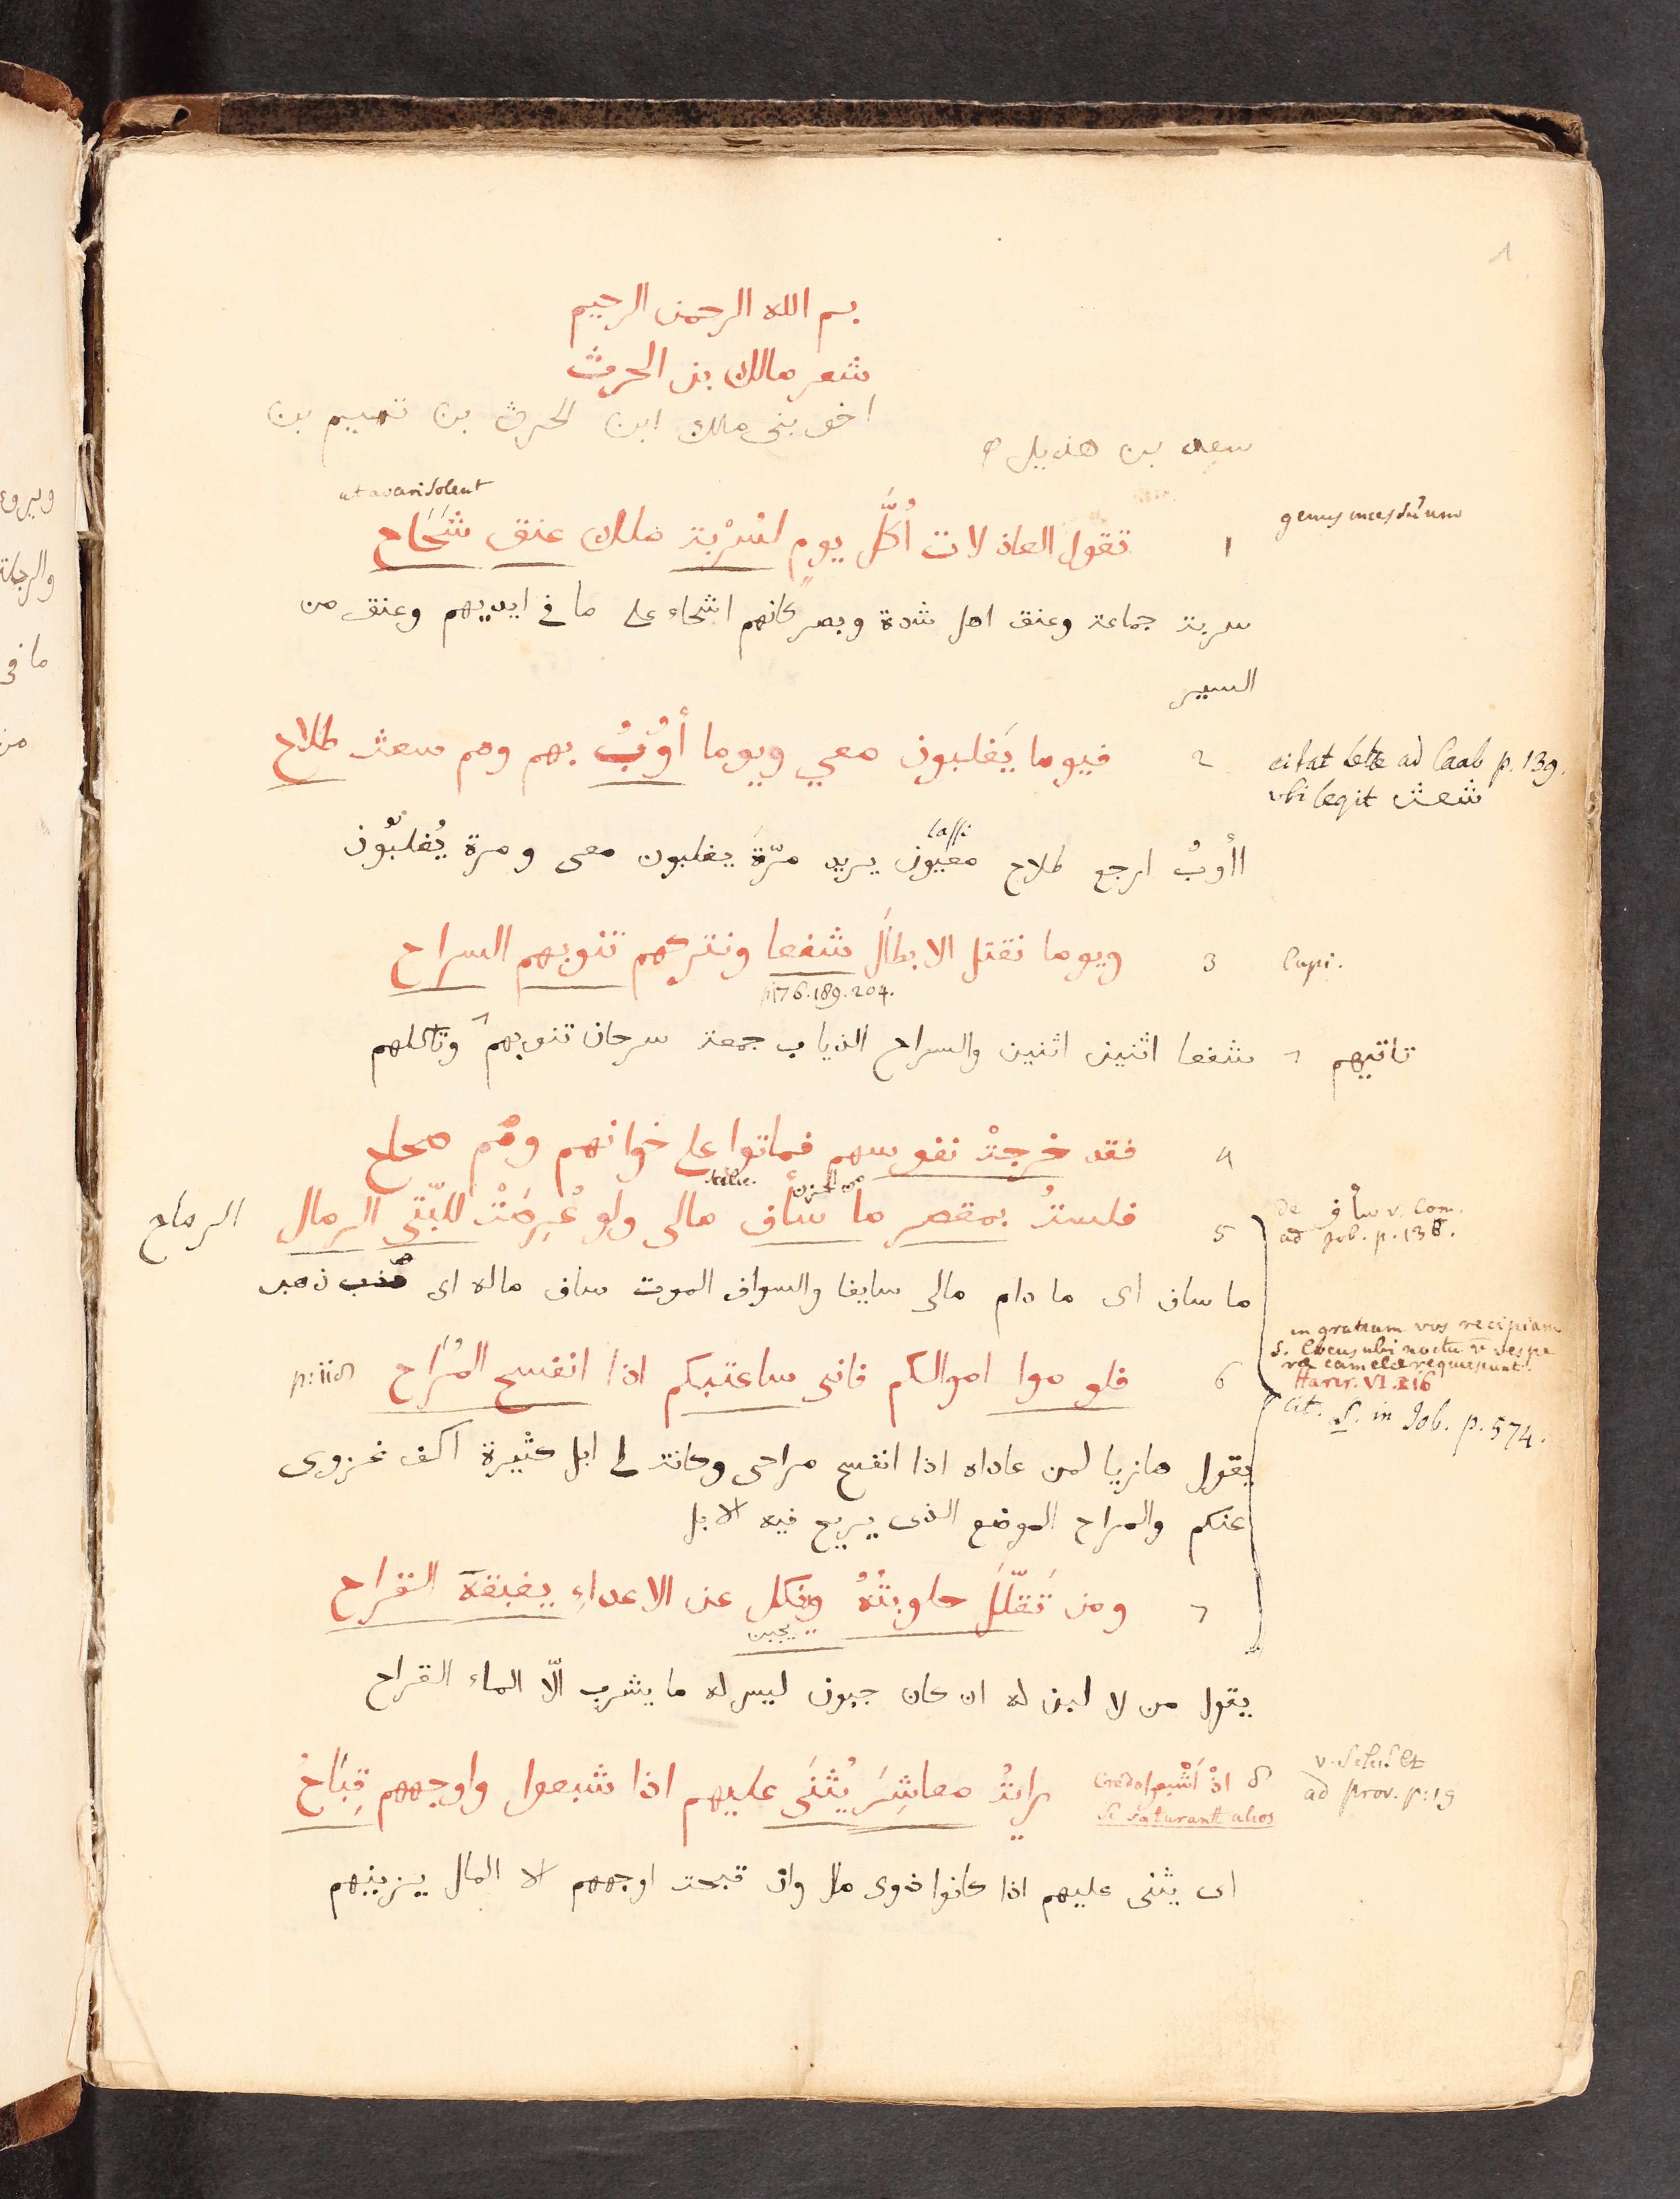 بسم الله الرحمن الرحيم
شعر مالك بن الحرث
اخى بنى مالك ابن الحرث بن تميم بن
سعد بن هذيل
ut avari solent
genus incessuum
1 تقول العاذلات أَكُلَّ يومٍ لسُرْبة ملك عنق شَحَاح
سربة جماعة وعنق اهل شدة وبصر كانهم اشحاء على ما فى ايديهم وعنق من
السير
2 فيوما يَغلبون معي ويوما أَوُّبُ بهم وهم سعث طلاح
citat Lette ad Caab p. 139.
ubi legit شعث
lassi
اأوبُ ارجع طلاح معيون يريد مرّةً يغلبون معى ومرة يُغلبون
3 ويوما نقتل الابطالَ شفعا ونتركهم تنوبهم السراح
Lupi.
p176.189.204.
شفعا اثنين اثنين والسراح الذياب جمعة سرحان تنوبهم وتاكلهم
تاتيهم
4 فقد خرجتْ نفوسهم فماتوا على خوانهم وهُم صحاح
5 فلستُ بمقصر ما سأف مالى ولو عُرِضَتْ للبّتى الرمال
الرماح
de سأف v. Com.
ad Job. p. 138.
ما ساف اى ما دام مالى سايفا والسواف الموت ساف ماله اى ذهب
6 فلوموا اموالكم فانى ساعتبكم اذا انفسح المُرَاح
in gratiam vos recipiam
S. locus ubi noctu v vespe
ra camela requiescunt.
Harir. VI. 216
cit. S. in Job. p. 574.
يقول هازيا لمن عاداه اذا انفسح مراحى وكانت لى ابل كثيرة اكف غزوى
عنكم والمراح الموضع الذى يريح فيه الابل
7 ومن تَقلّل حلوبتُهُ وينكل عن الاعداءِ يغبقه القراح
يجبن
يقول من لا لبن له ان كان جبون ليس له ما يشرب الّا الماء القراح
8 رايتُ معاشِرَ يُثنَى عليهم اذا شبعوا واوجههم قِبَاحُ
Credo اذْ أَشْبعوا
si saturant alios
v. Schul. et
ad prov. p: 19
اى يثنى عليهم اذا كانوا ذوى مال وان قبحت اوجههم لا المال يزينهم